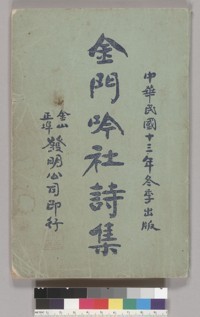 中華民國十三年冬季出版
金門吟社詩集
金山
正埠
發明公司印行